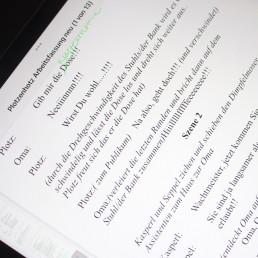 Plotzenhotz Arbeitsfassung neu (1 von 13)
Plotz: Gib mir die Dose!!!
Oma: Neeiiinnnn!!!!
Plotz: Wirst Du wohl.....!!!!
(durch die Drehgeschwindigkeit des Stuhls/der Bank wird es
schwindelig und lässt die Dose los und dreht sich weiter aus.
Plotz freut sich das er die Dose hat)
Plotz:( zum Publikum) Na also, geht doch!!! (und verschwindet)
Oma:(verleiert die letzten Runden und bricht dann auf dem
Stuhl/der Bank zusammen)
Szene 2
Kasperl und Seppel ziehen und schieben den Dimpfelmoser
Assistenten zum Haus zur Oma
Kasperl: Wachtmeister jetzt kommen Sie
Sie sind ja langsamer als
erlaubt!!
(entdeckt Oma auf